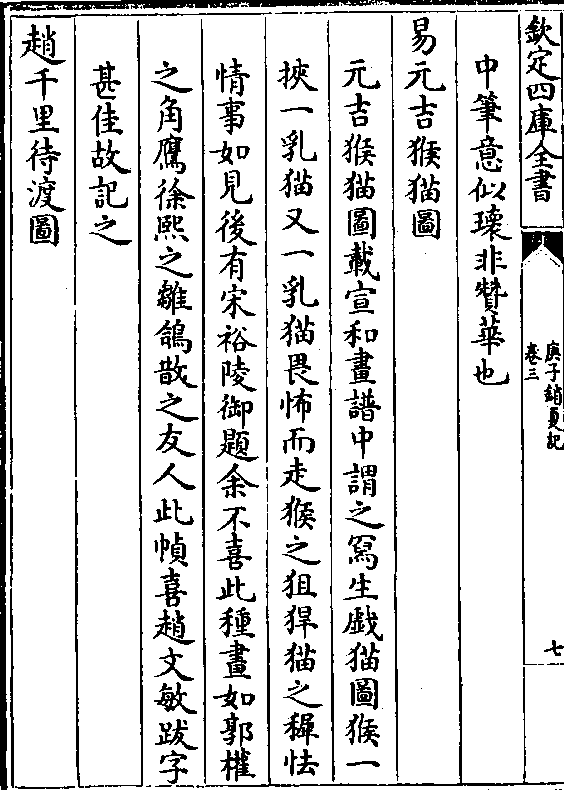 欽定四庫全書
庚子銷夏記
卷三
七
中筆意似瓌非贊華也
易元吉猴猫圖
元吉猴猫圖載宣和畫譜中謂之寫生戲猫圖猴一
挾一乳猫又一乳猫畏怖而走猴之狙猂猫之穉怯
情事如見後有宋裕陵御題余不喜此種畫如郭權
之角鷹徐熙之雛鴿散之友人此幀喜趙文敏跋字
甚佳故記之
趙千里待渡圖